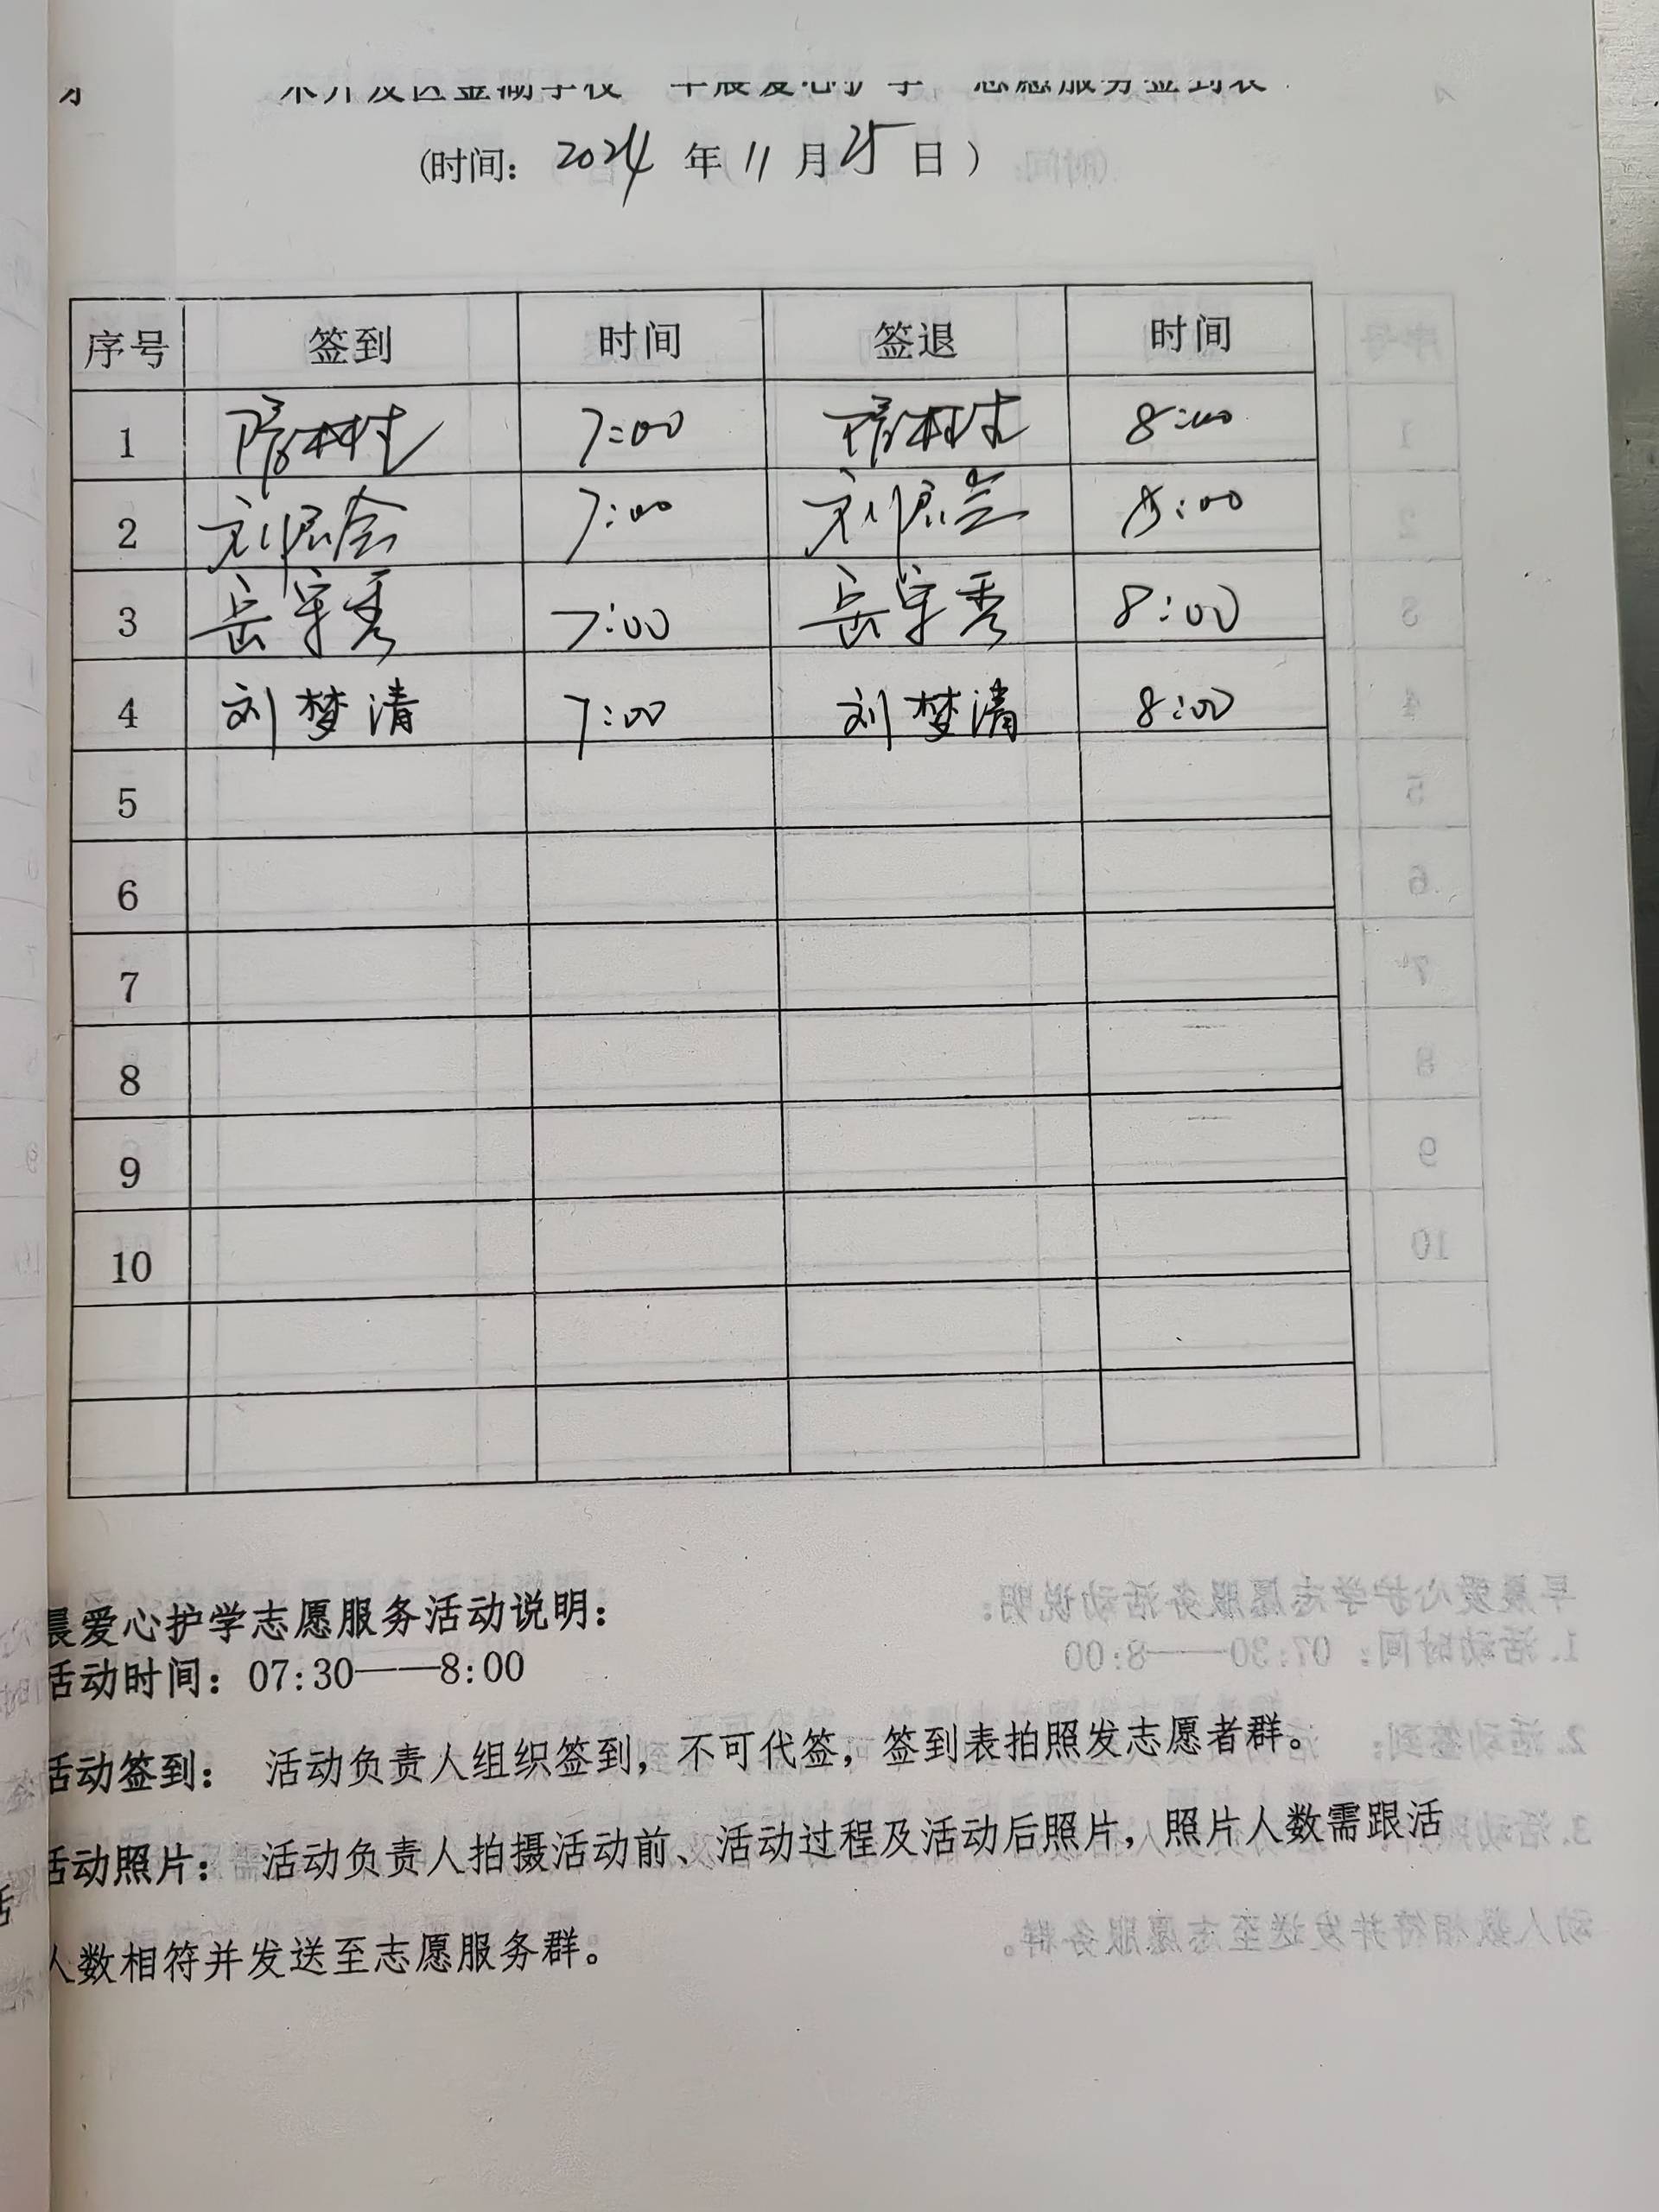 开发区金湖学校 早晨爱心护学 志愿服务签到表
(时间: 2024 年 11 月 25 日 )
序号 签到 时间 签退 时间
1 7:00 8:00
2 刘 7:00 刘 8:00
3 岳宇秀 7:00 岳宇秀 8:00
4 刘梦清 7:00 刘梦清 8:00
5
6
7
8
9
10
晨爱心护学志愿服务活动说明：
活动时间：07:30——8:00
活动签到： 活动负责人组织签到，不可代签，签到表拍照发志愿者群。
活动照片： 活动负责人拍摄活动前、活动过程及活动后照片，照片人数需跟活
人数相符并发送至志愿服务群。